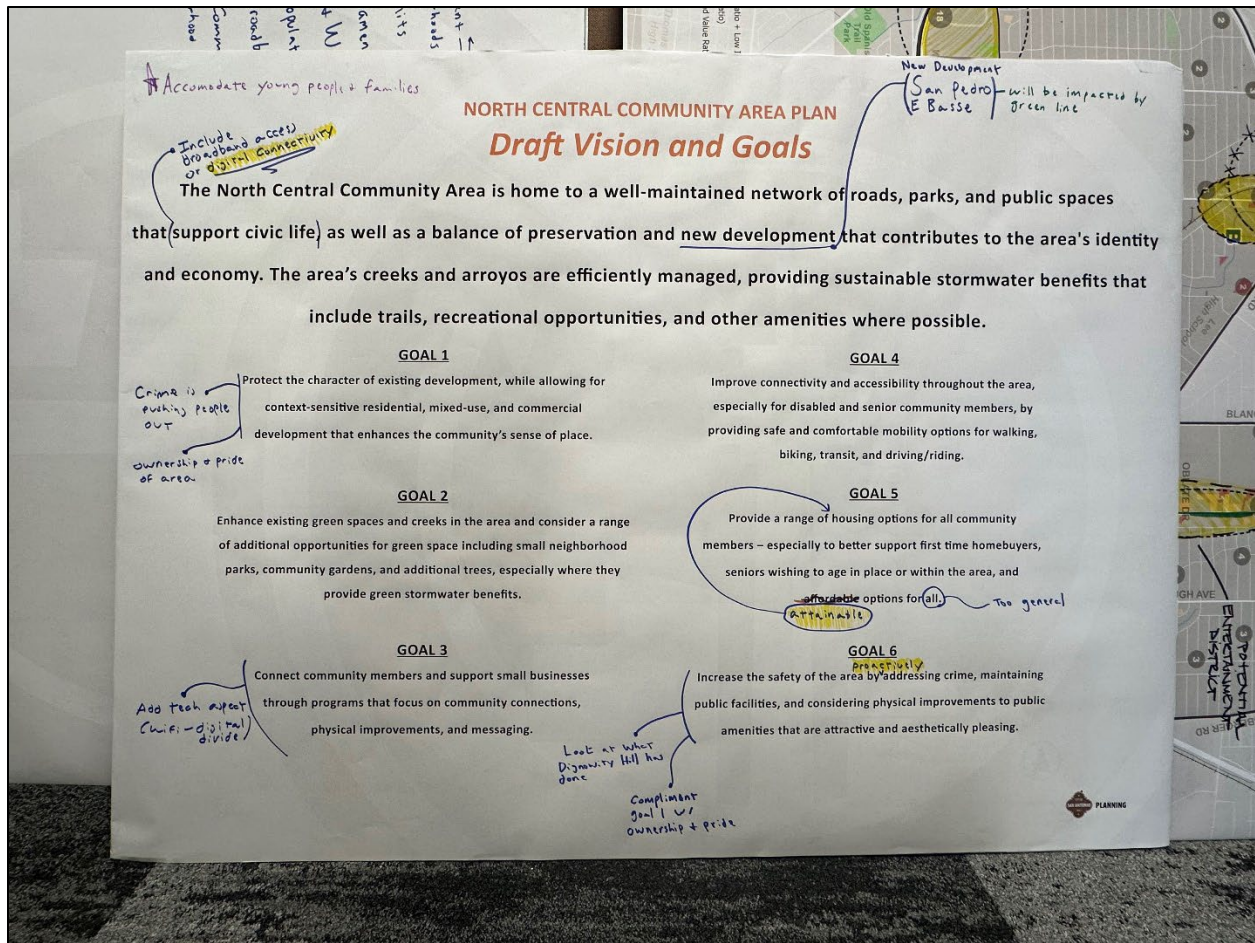 ☆ Accomodate young people + families
New Development
(San Pedro) – will be impacted by
(E Basse green line
NORTH CENTRAL COMMUNITY AREA PLAN
Draft Vision and Goals
• Include
broadband access
or digital connectivity
The North Central Community Area is home to a well-maintained network of roads, parks, and public spaces
that (support civic life) as well as a balance of preservation and new development that contributes to the area's identity
and economy. The area's creeks and arroyos are efficiently managed, providing sustainable stormwater benefits that
include trails, recreational opportunities, and other amenities where possible.
GOAL 1
Protect the character of existing development, while allowing for
context-sensitive residential, mixed-use, and commercial
development that enhances the community's sense of place.
Crime is
pushing people
out
ownership + pride
of area
GOAL 2
Enhance existing green spaces and creeks in the area and consider a range
of additional opportunities for green space including small neighborhood
parks, community gardens, and additional trees, especially where they
provide green stormwater benefits.
GOAL 3
Connect community members and support small businesses
through programs that focus on community connections,
physical improvements, and messaging.
Add tech aspect
(wifi - digital
divide)
GOAL 4
Improve connectivity and accessibility throughout the area,
especially for disabled and senior community members, by
providing safe and comfortable mobility options for walking,
biking, transit, and driving/riding.
GOAL 5
Provide a range of housing options for all community
members – especially to better support first time homebuyers,
seniors wishing to age in place or within the area, and
affordable options for all.
attainable
Too general
GOAL 6
proactively
Increase the safety of the area by addressing crime, maintaining
public facilities, and considering physical improvements to public
amenities that are attractive and aesthetically pleasing.
Look at what
Dignowity Hill has
done
Compliment
goal 1 w/
ownership + pride
SAN ANTONIO PLANNING
Old Spanish
Trail
Park
18
2
2
2
2
B
2
Lee
High School
BLAN
4
GH AVE
3
POTENTIAL
ENTERTAINMENT
DISTRICT
ER RD